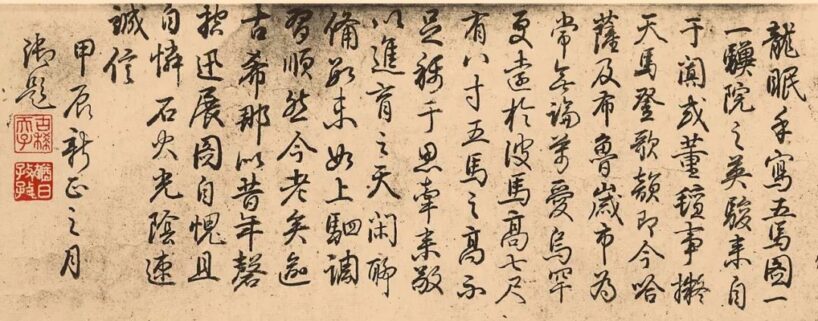 龍眠手寫五馬圖一
一驥院之英駿來自
于闐或董氊事擬
天馬登歌韻即今哈
薩及布魯歲市為
常無論愛烏罕
更遠於彼馬高七尺
有八寸五馬之高不
足稱于思牽來敬
以進育之天閑聊
備數未如上駟調
習順然今老矣逾
古希那以昔年磬
控迅展圖自愧且
自憐石火光陰速
誠信
甲辰新正之月
御題
古稀天子
猶日孜孜